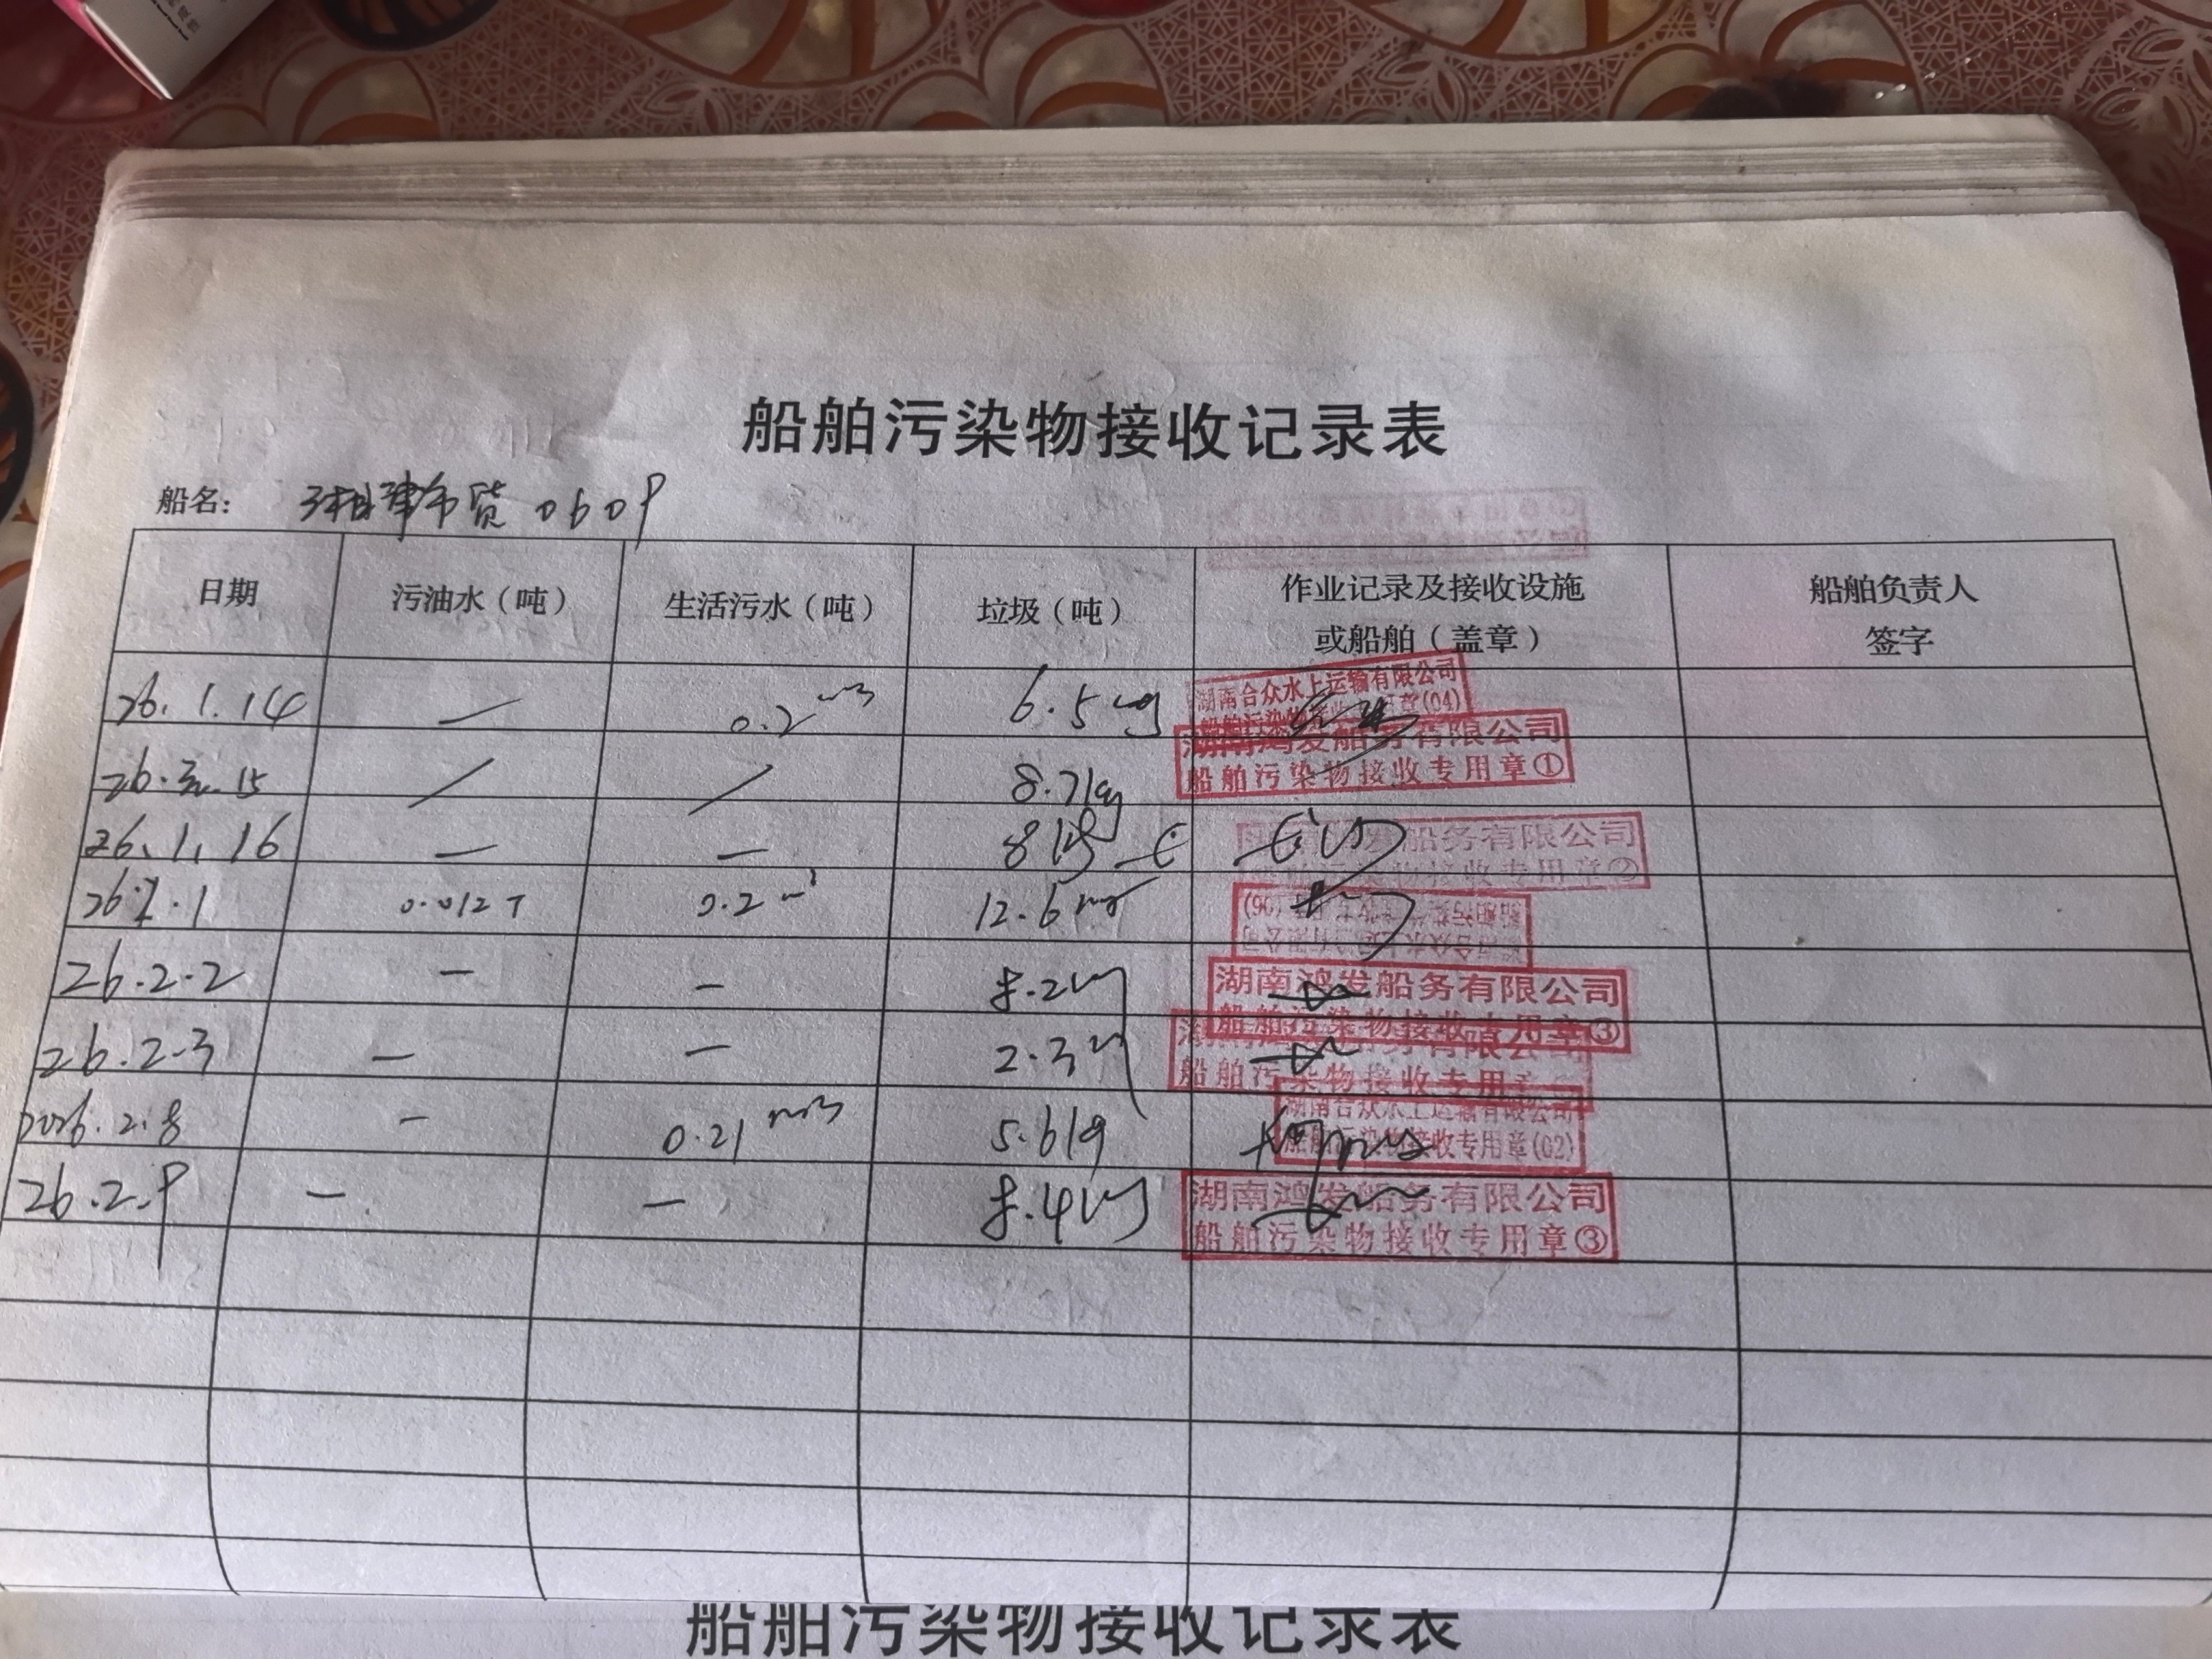 船舶污染物接收记录表
船名： 湘津市货 0609
日期 污油水（吨） 生活污水（吨） 垃圾（吨） 作业记录及接收设施
或船舶（盖章） 船舶负责人
签字
26.1.14 — 0.2 m3 6.5 kg 湖南合众水上运输有限公司
船舶污染物接收专用章(04)
26. 15 / / 8.7kg 湖南鸿发船务有限公司
船舶污染物接收专用章①
26.1.16 — — 8 船务有限公司
接收专用章②
26.2.1 0.012T 0.2 m3 12.6 kg (06)
26.2.2 — — 8.2 湖南鸿发船务有限公司
船舶污染物接收专用章③
26.2.3 — — 2.3 务有限公司
船舶污染物接收专用章
2026.2.8 — 0.21 m3 5.6kg 湖南合众水上运输有限公司
船舶污染物接收专用章(02)
26.2.9 — — 8.4 湖南鸿发船务有限公司
船舶污染物接收专用章③
船舶污染物接收记录表